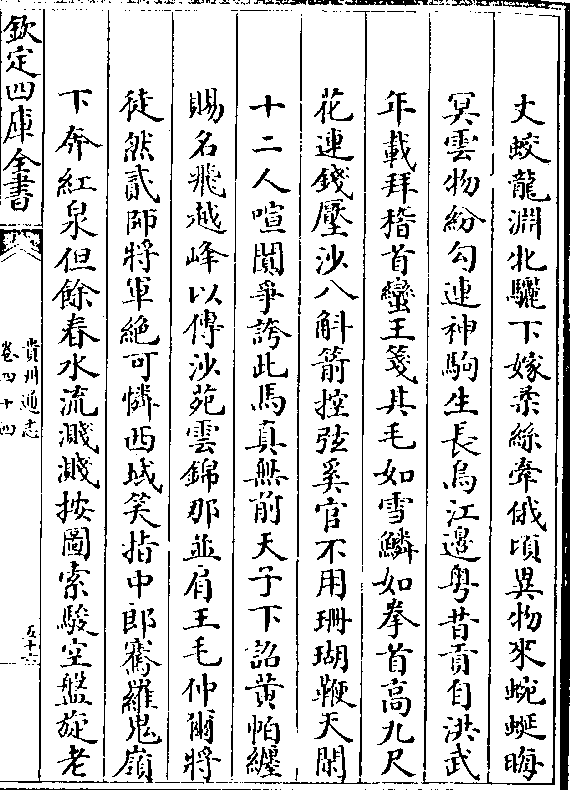 丈蛟龍淵北驪下嫁柔絲牽俄頃異物來蜿蜒晦
冥雲物紛勾連神駒生長烏江邊粤昔貢自洪武
年載拜稽首蠻王箋其毛如雪鱗如拳首高九尺
花連錢壓沙八斛箭控弦奚官不用珊瑚鞭天閑
十二人喧闐爭誇此馬真無前天子下詔黄帕纏
賜名飛越峰以傳沙苑雲錦那並肩王毛仲爾將
徒然貳師將軍絶可憐西域笑指中郎騫羅鬼嶺
下奔紅泉但餘春水流濺濺按圖索駿空盤旋老
欽定四庫全書
貴州通志
卷四十四
五十六